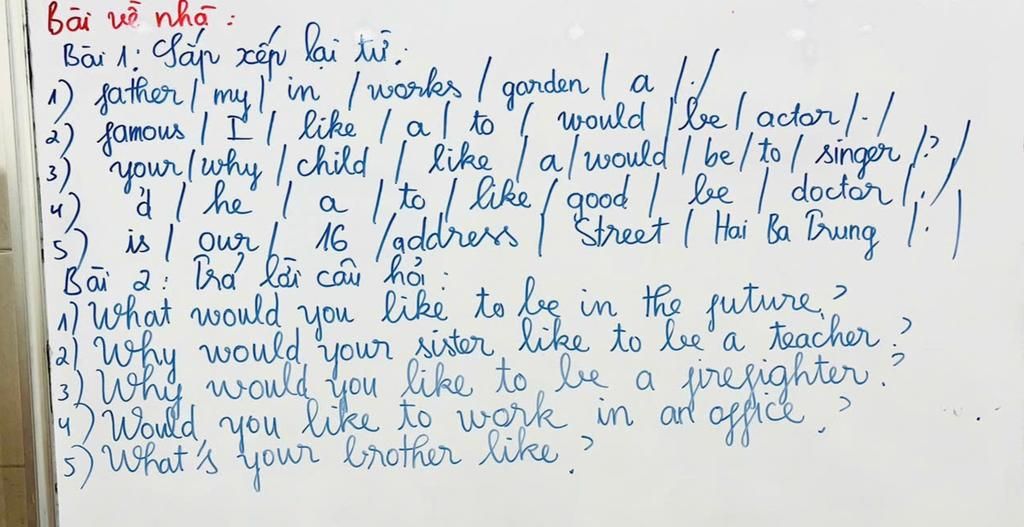 Bài về nhà:
Bài 1: Sắp xếp lại từ:
1) father / my / in / works / garden / a / . /
2) famous / I / like / a / to / would / be / actor / . /
3) your / why / child / like / a / would / be / to / singer / ? /
4) 'd / he / a / to / like / good / be / doctor / . /
5) is / our / 16 / address / Street / Hai Ba Trung / . /
Bài 2: Trả lời câu hỏi:
1) What would you like to be in the future?
2) Why would your sister like to be a teacher?
3) Why would you like to be a firefighter?
4) Would you like to work in an office?
5) What's your brother like?